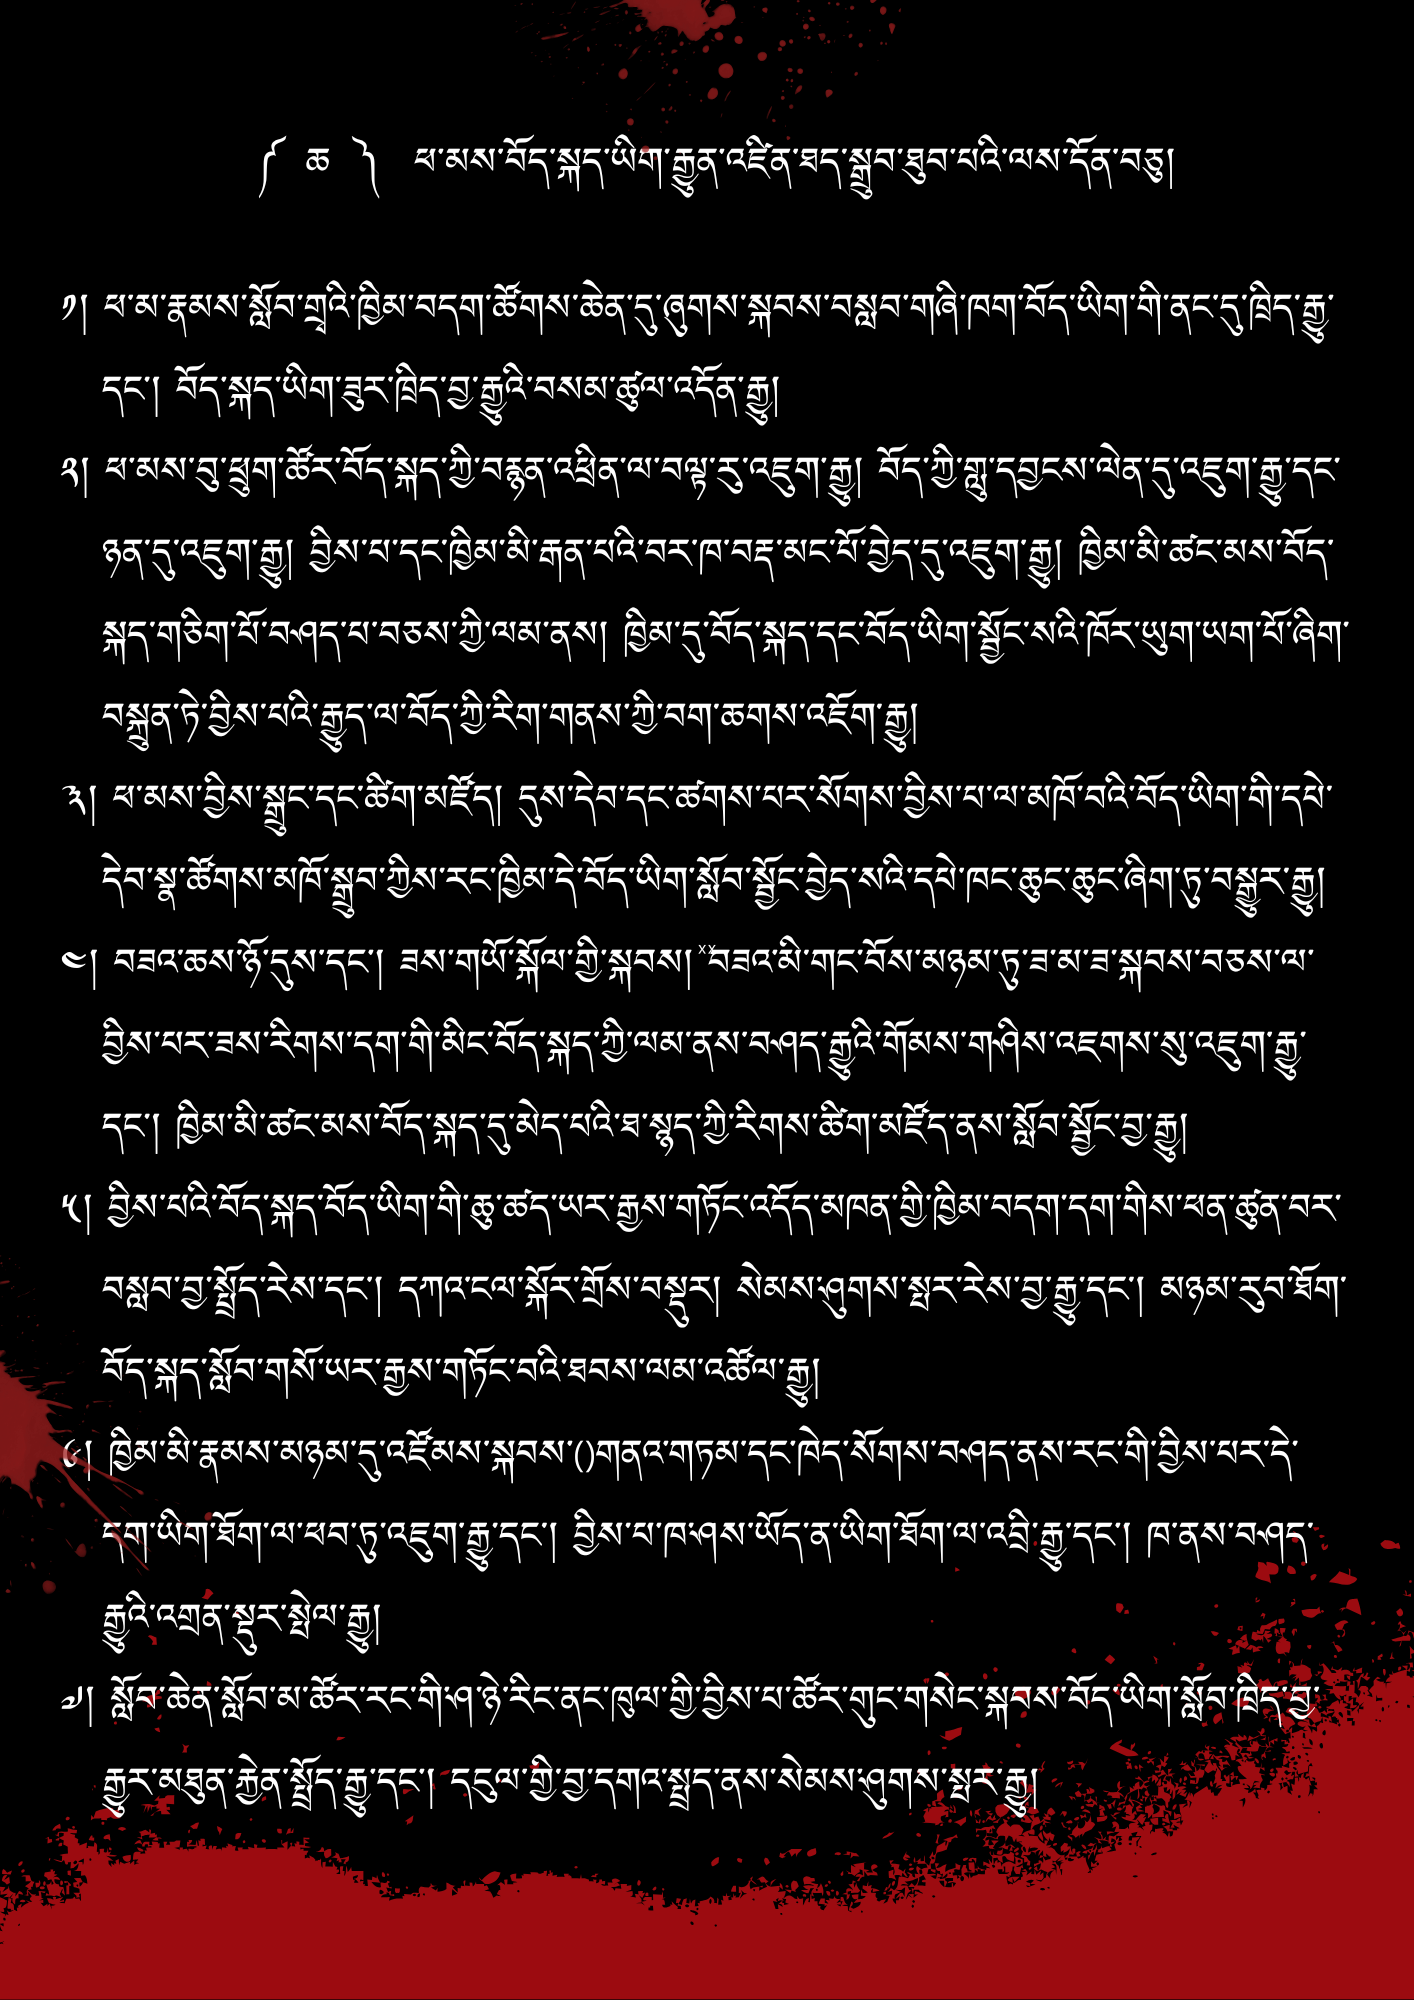 ༼ ཆ ༽ ཕ་མས་བོད་སྐད་ཡིག་རྒྱུན་འཛིན་ཐད་སྒྲུབ་ཐུབ་པའི་ལས་དོན་བཅུ།
༡། ཕ་མ་རྣམས་སློབ་གྲྭའི་ཁྱིམ་བདག་ཚོགས་ཆེན་དུ་ཞུགས་སྐབས་བསླབ་གཞི་ཁག་བོད་ཡིག་གི་ནང་དུ་ཁྲིད་རྒྱུ་
དང་། བོད་སྐད་ཡིག་ཟུར་ཁྲིད་བྱ་རྒྱུའི་བསམ་ཚུལ་འདོན་རྒྱུ།
༢། ཕ་མས་བུ་ཕྲུག་ཚོར་བོད་སྐད་ཀྱི་བརྙན་འཕྲིན་ལ་བལྟ་རུ་འཇུག་རྒྱུ། བོད་ཀྱི་གླུ་དབྱངས་ལེན་དུ་འཇུག་རྒྱུ་དང་
ཉན་དུ་འཇུག་རྒྱུ། བྱིས་པ་དང་ཁྱིམ་མི་རྒན་པའི་བར་ཁ་བརྡ་མང་པོ་བྱེད་དུ་འཇུག་རྒྱུ། ཁྱིམ་མི་ཚང་མས་བོད་
སྐད་གཅིག་པོ་བཤད་པ་བཅས་ཀྱི་ལམ་ནས། ཁྱིམ་དུ་བོད་སྐད་དང་བོད་ཡིག་སྦྱོང་སའི་ཁོར་ཡུག་ཡག་པོ་ཞིག་
བསྐྲུན་ཏེ་བྱིས་པའི་རྒྱུད་ལ་བོད་ཀྱི་རིག་གནས་ཀྱི་བག་ཆགས་འཇོག་རྒྱུ།
༣། ཕ་མས་བྱིས་སྒྲུང་དང་ཚིག་མཛོད། དུས་དེབ་དང་ཚགས་པར་སོགས་བྱིས་པ་ལ་མཁོ་བའི་བོད་ཡིག་གི་དཔེ་
དེབ་སྣ་ཚོགས་མཁོ་སྒྲུབ་ཀྱིས་རང་ཁྱིམ་དེ་བོད་ཡིག་སློབ་སྦྱོང་བྱེད་སའི་དཔེ་ཁང་ཆུང་ཆུང་ཞིག་ཏུ་བསྒྱུར་རྒྱུ།
༤། བཟའ་ཆས་ཉོ་དུས་དང་། ཟས་གཡོ་སྐོལ་གྱི་སྐབས། ××བཟའ་མི་གང་བོས་མཉམ་ཏུ་ཟ་མ་ཟ་སྐབས་བཅས་ལ་
བྱིས་པར་ཟས་རིགས་དག་གི་མིང་བོད་སྐད་ཀྱི་ལམ་ནས་བཤད་རྒྱུའི་གོམས་གཤིས་འཇགས་སུ་འཇུག་རྒྱུ་
དང་། ཁྱིམ་མི་ཚང་མས་བོད་སྐད་དུ་མེད་པའི་ཐ་སྙད་ཀྱི་རིགས་ཚིག་མཛོད་ནས་སློབ་སྦྱོང་བྱ་རྒྱུ།
༥། བྱིས་པའི་བོད་སྐད་བོད་ཡིག་གི་ཆུ་ཚད་ཡར་རྒྱས་གཏོང་འདོད་མཁན་གྱི་ཁྱིམ་བདག་དག་གིས་ཕན་ཚུན་བར་
བསླབ་བྱ་སྤྲོད་རེས་དང་། དཀའ་ངལ་སྐོར་གྲོས་བསྡུར། སེམས་ཤུགས་སྤར་རེས་བྱ་རྒྱུ་དང་། མཉམ་རུབ་ཐོག་
བོད་སྐད་སློབ་གསོ་ཡར་རྒྱས་གཏོང་བའི་ཐབས་ལམ་འཚོལ་རྒྱུ།
༦། ཁྱིམ་མི་རྣམས་མཉམ་དུ་འཛོམས་སྐབས་()གནའ་གཏམ་དང་ཁེད་སོགས་བཤད་ནས་རང་གི་བྱིས་པར་དེ་
དག་ཡིག་ཐོག་ལ་ཕབ་ཏུ་འཇུག་རྒྱུ་དང་། བྱིས་པ་ཁ་ཤས་ཡོད་ན་ཡིག་ཐོག་ལ་འབྲི་རྒྱུ་དང་། ཁ་ནས་བཤད་
རྒྱུའི་འགྲན་སྡུར་སྤེལ་རྒྱུ།
༧། སློབ་ཆེན་སློབ་མ་ཚོར་རང་གི་ཤ་ཉེ་རིང་ནང་ཁུལ་གྱི་བྱིས་པ་ཚོར་གུང་གསེང་སྐབས་བོད་ཡིག་སློབ་ཁྲིད་བྱ་
རྒྱུར་མཐུན་རྐྱེན་སྤྲོད་རྒྱུ་དང་། དངུལ་གྱི་བྱ་དགའ་སྤྲད་ནས་སེམས་ཤུགས་སྤར་རྒྱུ།